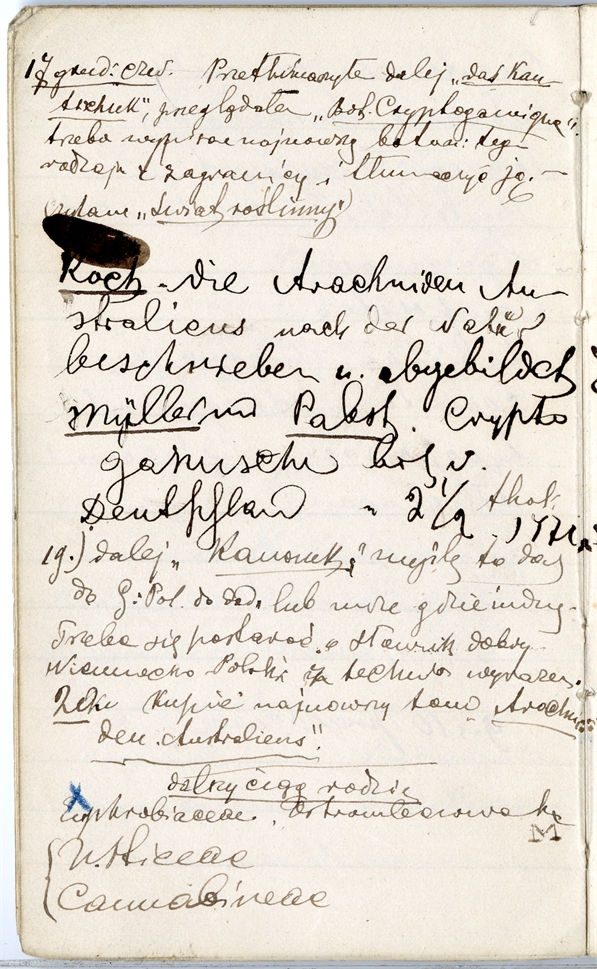 17 grud: czw. Przetłómaczyłem dalej „das Kau-
tschuk", przeglądałem „Bot. Cryptogamique".
trzeba wypisać najnowszą botan:
rodzaju z zagranicy, tłumaczyć ję-
czytam „Świat roślinny"
Koch - die Arachniden Au-
straliens nach der Natur
beschrieben u. abgebildet
Müller und Pabst. Crypto
gamische v.
Deutschland - 2 1/2 thal. 1871
19.) dalej „Kauczuk," myślę to dać
do G: Pol. lub może gdzieindzej-
Trzeba się postarać o słownik dobry
Niemiecko Polski techn wyrażeń.
kupić najnowszy tom Arachni
den Australiens".
dalszy ciąg rodzin
M
Urticeae
Cannabineae